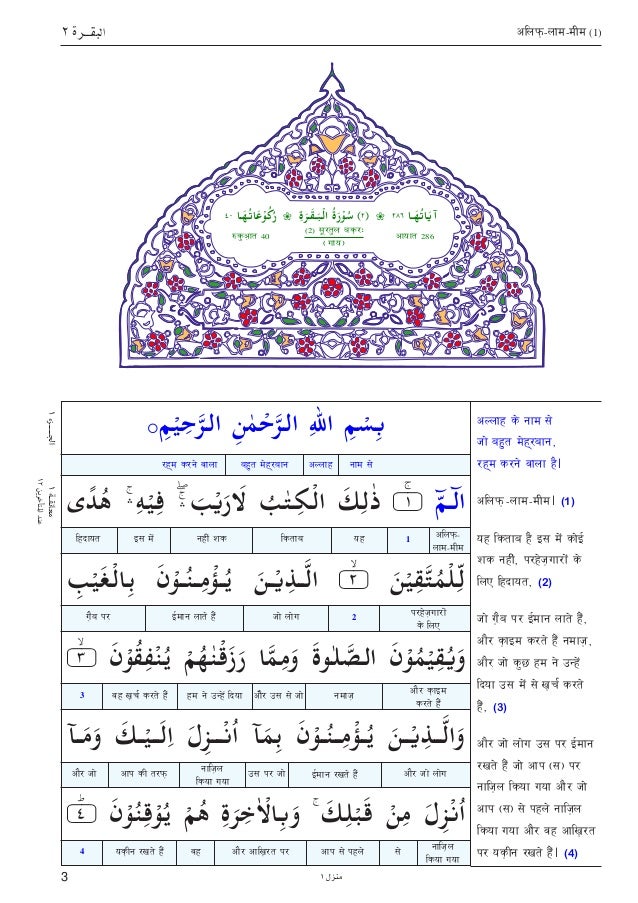 البقرة ٢
अलिफ़-लाम-मीम (1)
اٰيَاتُهَا ٢٨٦ ❀ (٢) سُوْرَةُ الْبَقَرَةِ ❀ رُكُوْعَاتُهَا ٤٠
आयात 286
(2) सूरतुल बक़रः
(गाय)
रुकुआत 40
الجزء ١
معانقة ١
عند المتأخرين ١٢
بِسْمِ اللهِ الرَّحْمٰنِ الرَّحِيْمِ ○
नाम से अल्लाह बहुत मेह्रबान रह्म करने वाला
الٓمّٓ ۚ ١ ذٰلِكَ الْكِتٰبُ لَارَيْبَ ۛۖ فِيْهِ ۛۚ هُدًى
अलिफ़-लाम-मीम 1 यह किताब नहीं शक इस में हिदायत
لِّلْمُتَّقِيْنَ ۙ ٢ الَّذِيْنَ يُؤْمِنُوْنَ بِالْغَيْبِ
परहेज़गारों के लिए 2 जो लोग ईमान लाते हैं ग़ैब पर
وَيُقِيْمُوْنَ الصَّلٰوةَ وَمِمَّا رَزَقْنٰهُمْ يُنْفِقُوْنَ ۙ ٣
और क़ाइम करते हैं नमाज़ और उस से जो हम ने उन्हें दिया वह ख़र्च करते हैं 3
وَالَّذِيْنَ يُؤْمِنُوْنَ بِمَآ اُنْزِلَ اِلَيْكَ وَمَآ
और जो लोग ईमान रखते हैं उस पर जो नाज़िल किया गया आप की तरफ़ और जो
اُنْزِلَ مِنْ قَبْلِكَ ۚ وَبِالْاٰخِرَةِ هُمْ يُوْقِنُوْنَ ؕ ٤
नाज़िल किया गया से आप से पहले और आख़िरत पर वह यक़ीन रखते हैं 4
अल्लाह के नाम से
जो बहुत मेह्रबान,
रह्म करने वाला है।
अलिफ़-लाम-मीम। (1)
यह किताब है इस में कोई
शक नहीं, परहेज़गारों के
लिए हिदायत, (2)
जो ग़ैब पर ईमान लाते हैं,
और क़ाइम करते हैं नमाज़,
और जो कुछ हम ने उन्हें
दिया उस में से ख़र्च करते
हैं, (3)
और जो लोग उस पर ईमान
रखते हैं जो आप (स) पर
नाज़िल किया गया और जो
आप (स) से पहले नाज़िल
किया गया और वह आख़िरत
पर यक़ीन रखते हैं। (4)
منزل ١
3